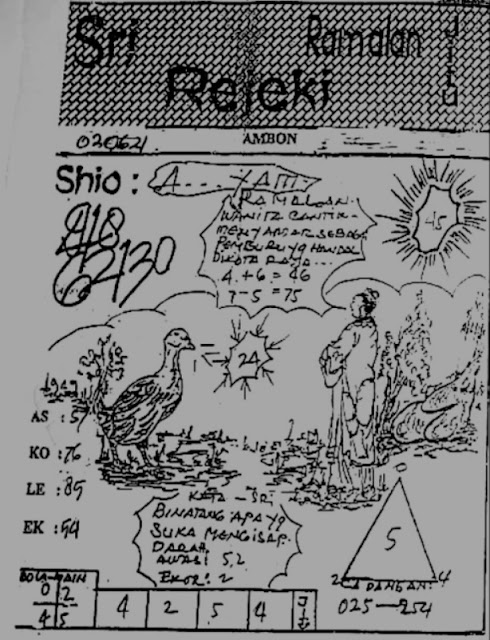 Sri
Ramalan
JITU
Rejeki
AMBON
Shio: A...YAM
RAMALAN
WANITA CANTIK
MENYAMAR SEBAGAI
PEMBURU YG HANDAL
DIKOTA RAYA...
4+6=46
7-5=75
45
24
AS : 57
KO : 76
LE : 89
EK : 94
KATA - SRI
BINATANG APA YG
SUKA MENGISAP
DARAH
AWAS: 5,2
EKOR: 2
0
5
2
4
CADANGAN:
025-254
BOLA-MAIN
0 2
4 5
4 2 5 4 JITU